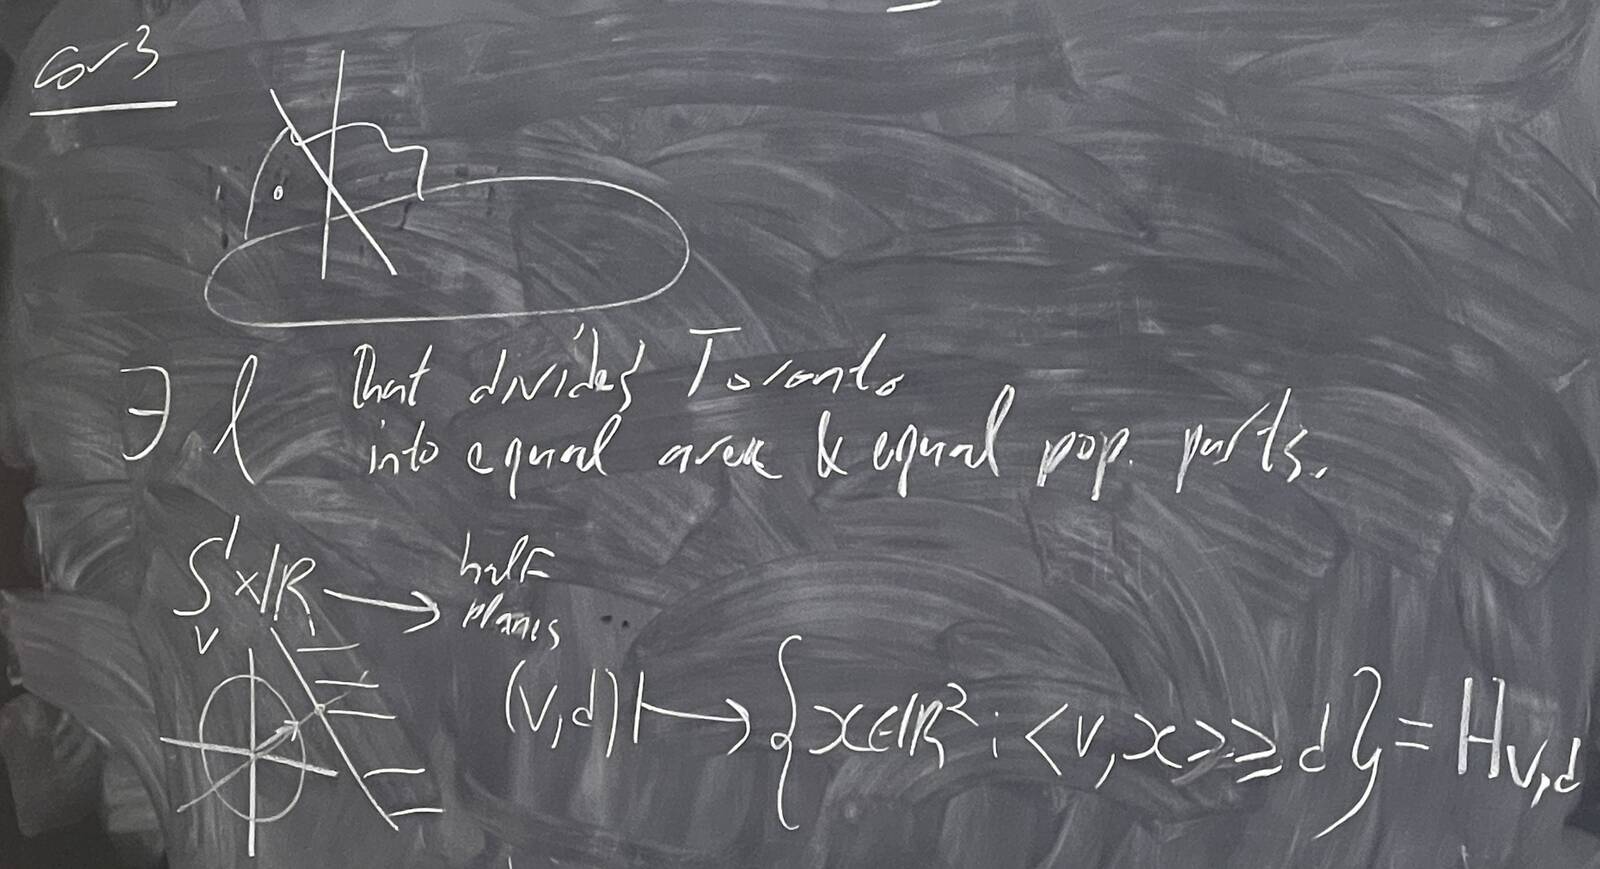 Cor 3
∃ l that divides Toronto
into equal area & equal pop. parts.
S¹×ℝ → half planes
v
(v,d) ↦ {x∈ℝ² : <v,x> ≥ d} = H_{v,d}